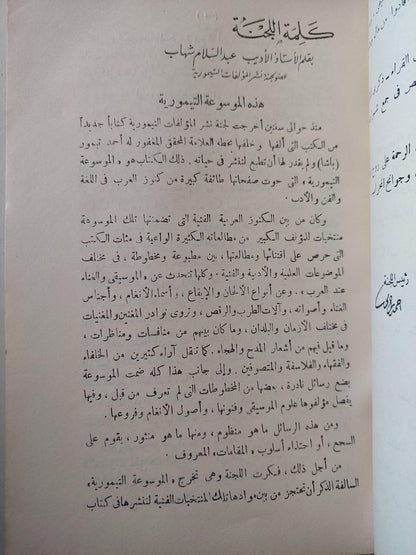 كلمة اللجنة
بقلم الأستاذ الأديب عبد السلام شهاب
عضو لجنة نشر المؤلفات التيمورية
هذه الموسوعة التيمورية
منذ حوالى سنتين أخرجت لجنة نشر المؤلفات التيمورية كتاباً جديداً
من الكتب التى ألفها وخلفها بخطه العلامة المحقق المغفور له أحمد تيمور
(باشا) ولم يقدر لها أن تطبع لتنشر فى حياته. ذلك الكتاب هو «الموسوعة
التيمورية» التى حوت صفحاتها طائفة كبيرة من كنوز العرب فى اللغة
والفن والأدب.
وكان من بين الكنوز العربية الفنية التى تضمنتها تلك الموسوعة
منتخبات للمؤلف الكبير من مطالعاته الكثيرة الواعية فى مئات الكتب
التى حرص على اقتنائها ومطالعتها، بين مطبوعة ومخطوطة، فى مختلف
الموضوعات العلمية والأدبية والفنية. وكلها تتحدث عن «الموسيقى والغناء
عند العرب». وعن أنواع الألحان والإيقاع، وأسماء الأنغام، وأجناس
الغناء وأصواته، وآلات الطرب والرقص، وتروى نوادر المغنين والمغنيات
فى مختلف الأزمان والبلدان، وما كان بينهم من منافسات ومناظرات،
وما قيل فيهم من أشعار المدح والهجاء. كما تنقل آراء كثيرين من الخلفاء
والفقهاء والفلاسفة والمتصوفين. وإلى جانب هذا كله ضمت الموسوعة
بضع رسائل نادرة، بعضها من المخطوطات التى لم تعرف من قبل، وفيها
يفصل مؤلفوها علوم الموسيقى وفنونها، وأصول الأنغام وفروعها.
ومن هذه الرسائل ما هو منظوم، ومنها ما هو منثور، يقوم على
السجع، أو احتذاء أسلوب «المقامات» المعروف.
من أجل ذلك، فكرت اللجنة وهى تخرج «الموسوعة التيمورية»
السالفة الذكر أن تحتجز من بين موادها تلك المنتخبات الفنية لتنشرها فى كتاب
رئيس اللجنة